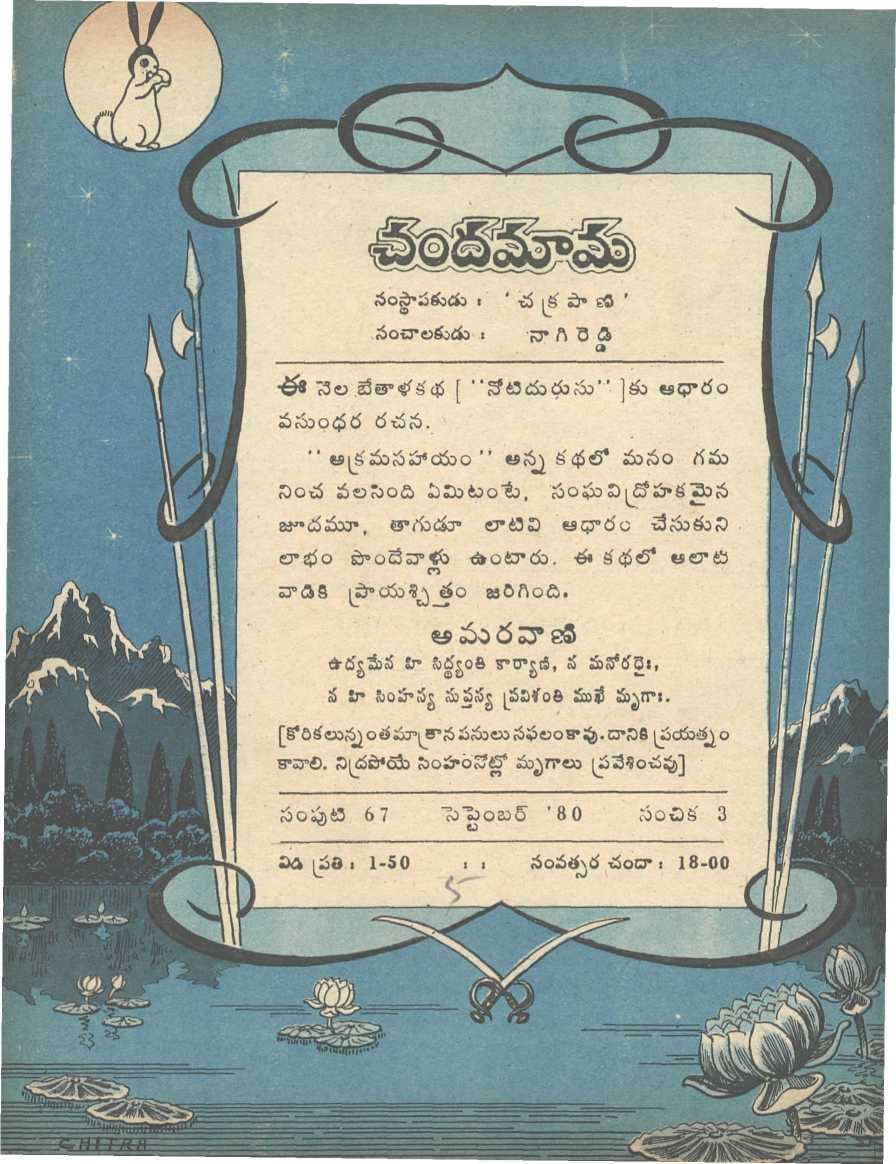 చందమామ
సంస్థాపకుడు : ' చ క్ర పా ణి '
సంచాలకుడు : నా గి రె డ్డి
ఈ నెల బేతాళకథ [ ''నోటిదురుసు'' ]కు ఆధారం
వసుంధర రచన.
'' అక్రమసహాయం '' అన్న కథలో మనం గమ
నించ వలసింది ఏమిటంటే, సంఘవిద్రోహకమైన
జూదమూ, తాగుడూ లాటివి ఆధారం చేసుకుని
లాభం పొందేవాళ్లు ఉంటారు. ఈ కథలో అలాటి
వాడికి ప్రాయశ్చిత్తం జరిగింది.
అమరవాణి
ఉద్యమేన హి సిద్ధ్యంతి కార్యాణి, న మనోరథైః,
న హి సింహస్య సుప్తస్య ప్రవిశంతి ముఖే మృగాః.
[కోరికలున్నంతమాత్రాన పనులు సఫలం కావు. దానికి ప్రయత్నం
కావాలి. నిద్రపోయే సింహంనోట్లో మృగాలు ప్రవేశించవు]
సంపుటి 67 సెప్టెంబర్ '80 సంచిక 3
విడి ప్రతి : 1-50 : : సంవత్సర చందా : 18-00
5
CHITRA